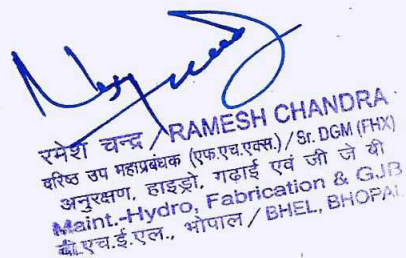 रमेश चन्द्र / RAMESH CHANDRA
वरिष्ठ उप महाप्रबंधक (एफ.एच.एक्स.) / Sr. DGM (FHX)
अनुरक्षण, हाइड्रो, गढाई एवं जी जे बी
Maint.-Hydro, Fabrication & GJB
बी.एच.ई.एल., भोपाल / BHEL, BHOPAL